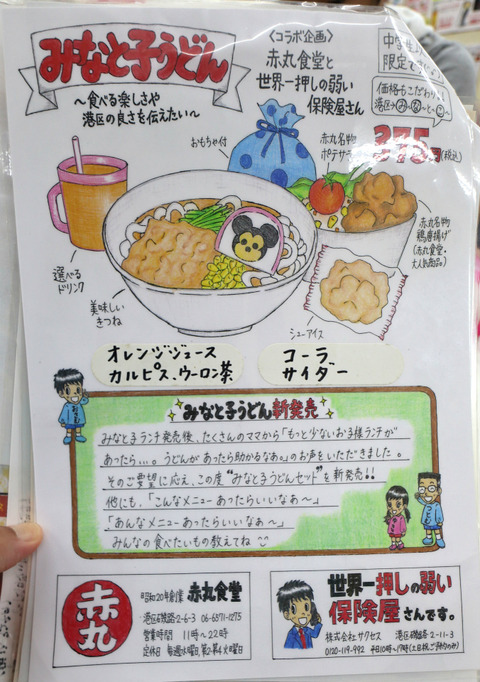 みなと子うどん
〜食べる楽しさや
港区の良さを伝えたい〜
〈コラボ企画〉
赤丸食堂と
世界一押しの弱い
保険屋さん
限定です
価格もこだわり
港区→み・な〜と・こ〜
375円(税込)
おもちゃ付
赤丸名物
ポテサラ
赤丸名物
鶏唐揚げ
(赤丸食堂・
大人気商品)
選べる
ドリンク
美味しい
きつね
シューアイス
オレンジジュース
カルピス、ウーロン茶
コーラ、
サイダー
みなと子うどん新発売
みなと子ランチ発売後、たくさんのママから「もっと少ないお子様ランチが
あったら…。うどんがあったら助かるなぁ。」のお声をいただきました。
そのご要望に応え、この度"みなと子うどんセット"を新発売!!
他にも、「こんなメニューあったらいいなぁ〜」
「あんなメニューあったらいいなぁ〜」
みんなの食べたいもの教えてね
赤丸
昭和20年創業 赤丸食堂
港区磯路2-6-3 06-6571-1275
営業時間 11時〜22時
定休日 毎週水曜日,第2・第4火曜日
世界一押しの弱い
保険屋さんです。
株式会社サクセス 港区磯路2-11-3
0120-119-992 平日10時〜19時(土日祝ご予約のみ)